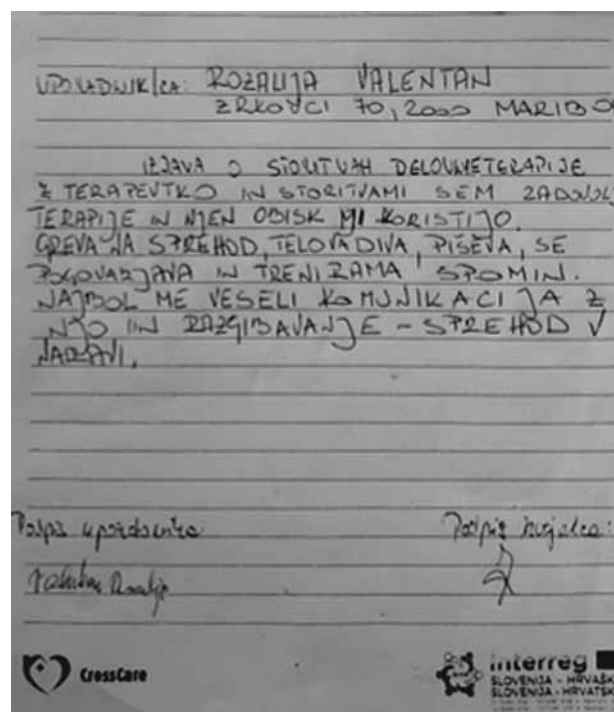 UPORABNIK/CA: ROZALIJA VALENTAN
ZRKOVCI 70, 2000 MARIBO
IZJAVA O STORITVAH DELOVNE TERAPIJE
Z TERAPEVTKO IN STORITVAMI SEM ZADOVOL
TERAPIJE IN NJEN OBISK MI KORISTIJO.
GREVA NA SPREHOD, TELOVADIVA, PIŠEVA, SE
POGOVARJAVA IN TRENIRAMA SPOMIN.
NAJBOL ME VESELI KOMUNIKACIJA Z
NJO IN RAZGIBAVANJE - SPREHOD V
NARAVI.
Podpis uporabnika: Podpis izvajalca:
Valentan Rozalija
CrossCare
interreg
SLOVENIJA - HRVAŠK
SLOVENIJA - HRVATSK